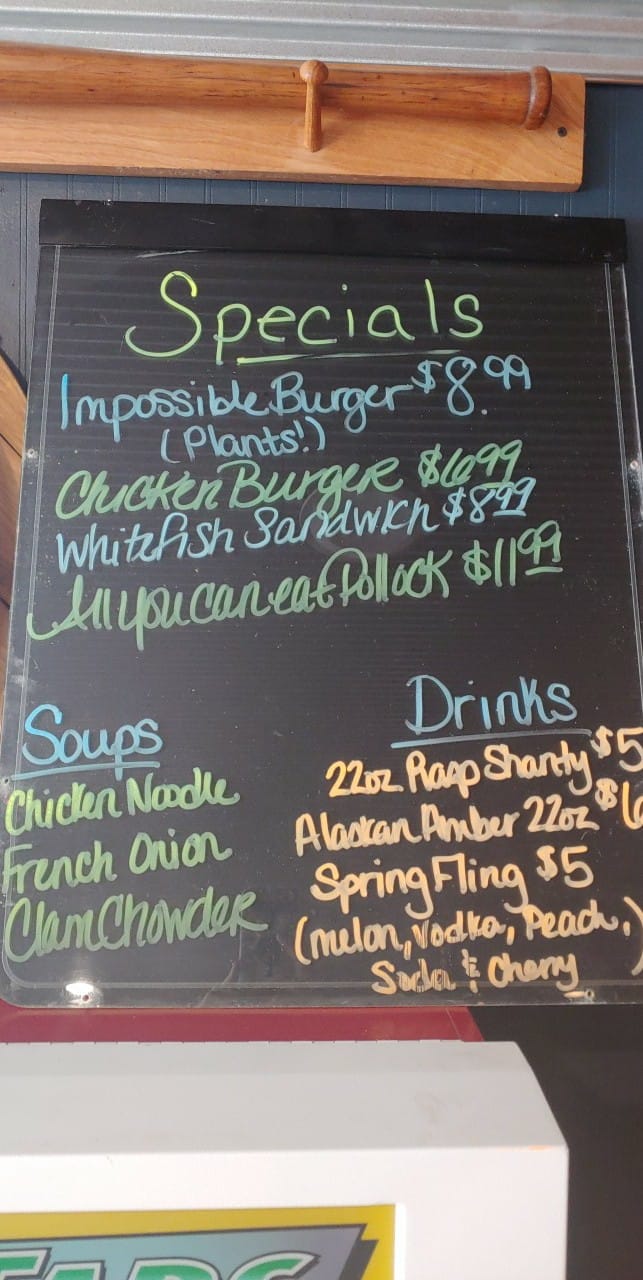 Specials
Impossible Burger $8.99
(Plants!)
Chicken Burger $6.99
Whitefish Sandwich $8.99
All you can eat Pollock $11.99
Soups
Chicken Noodle
French Onion
Clam Chowder
Drinks
22oz Rasp Shanty $5
Alaskan Amber 22oz $6
Spring Fling $5
(melon, Vodka, Peach,)
Soda & Cherry